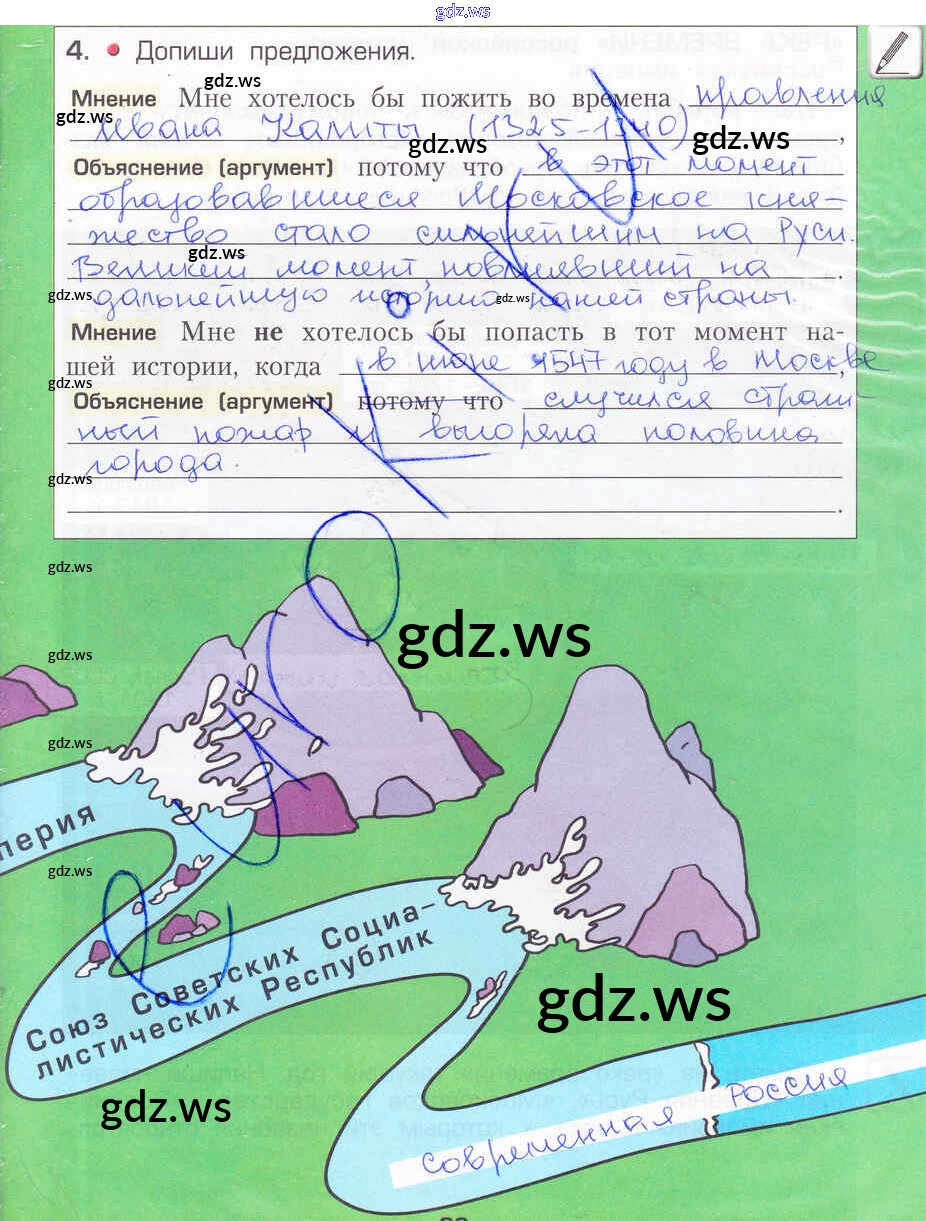 gdz.ws
4. • Допиши предложения.
gdz.ws
Мнение Мне хотелось бы пожить во времена правления
gdz.ws
Ивана Калиты (1325-1340),
gdz.ws gdz.ws
Объяснение (аргумент) потому что в этот момент
образовавшиеся Московское кня-
жество стало сильнейшим на Руси.
gdz.ws
Великий момент, повлиявший на.
gdz.ws
дальнейшую историю нашей страны.
gdz.ws
Мнение Мне не хотелось бы попасть в тот момент на-
шей истории, когда в июне 1547 году в Москве,
gdz.ws
Объяснение (аргумент) потому что случился страш-
ный пожар и выгорела половина
gdz.ws
города.
gdz.ws
.
gdz.ws
gdz.ws
gdz.ws
gdz.ws
перия
gdz.ws
Союз Советских Социа-
листических Республик
gdz.ws
gdz.ws
современная Россия